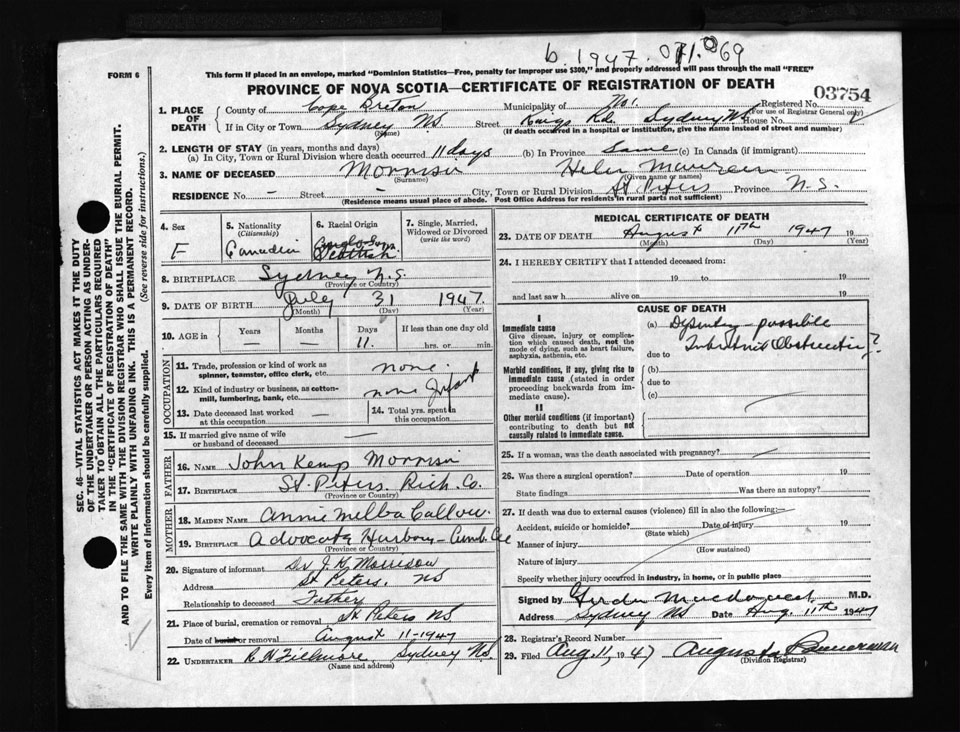 b. 1947. 069
FORM 6
This form if placed in an envelope, marked "Dominion Statistics—Free, penalty for improper use $300," and properly addressed will pass through the mail "FREE"
PROVINCE OF NOVA SCOTIA—CERTIFICATE OF REGISTRATION OF DEATH
03754
1. PLACE OF DEATH
County of Cape Breton Municipality of No. 1 Registered No.
(For use of Registrar General only)
If in City or Town Sydney NS Street Kings Rd. Sydney NS House No.
(Name) (If death occurred in a hospital or institution, give the name instead of street and number)
2. LENGTH OF STAY (in years, months and days)
(a) In City, Town or Rural Division where death occurred 11 days (b) In Province Same (c) In Canada (if immigrant)
3. NAME OF DECEASED Morrison Helen Maureen
(Surname) (Given name or names)
RESIDENCE No. - Street - City, Town or Rural Division St. Peters Province N.S.
(Residence means usual place of abode. Post Office Address for residents in rural parts not sufficient)
4. Sex
F
5. Nationality
(Citizenship)
Canadian
6. Racial Origin
Scottish
7. Single, Married, Widowed or Divorced
(write the word)
8. BIRTHPLACE Sydney N.S.
(Province or Country)
9. DATE OF BIRTH July 31 1947
(Month) (Day) (Year)
10. AGE in
Years Months Days If less than one day old
— — 11. hrs. or min.
OCCUPATION
11. Trade, profession or kind of work as spinner, teamster, office clerk, etc. none.
12. Kind of industry or business, as cotton-mill, lumbering, bank, etc. none Infant
13. Date deceased last worked at this occupation —
14. Total yrs. spent in this occupation
15. If married give name of wife or husband of deceased —
FATHER
16. NAME John Kemp Morrison
17. BIRTHPLACE St. Peters. Rich. Co.
(Province or Country)
MOTHER
18. MAIDEN NAME Annie Melba Callow.
19. BIRTHPLACE Advocate Harbour - Cumb. Co
(Province or Country)
20. Signature of informant Dr J. K. Morrison
Address St Peters. NS
Relationship to deceased Father
21. Place of burial, cremation or removal St Peters NS
Date of burial or removal August 11-1947
22. UNDERTAKER Fillmore Sydney N.S.
(Name and address)
MEDICAL CERTIFICATE OF DEATH
23. DATE OF DEATH August 11th 1947 19
(Month) (Day) (Year)
24. I HEREBY CERTIFY that I attended deceased from:
19 to 19
and last saw h alive on 19
CAUSE OF DEATH
I
Immediate cause
Give disease, injury or complication which caused death, not the mode of dying, such as heart failure, asphyxia, asthenia, etc.
(a) possible
Obstruction?
due to
Morbid conditions, if any, giving rise to immediate cause (stated in order proceeding backwards from immediate cause).
(b)
due to
(c)
II
Other morbid conditions (if important) contributing to death but not causally related to immediate cause.
25. If a woman, was the death associated with pregnancy?
26. Was there a surgical operation? Date of operation 19
State findings Was there an autopsy?
27. If death was due to external causes (violence) fill in also the following:—
Accident, suicide or homicide? Date of injury 19
(State which)
Manner of injury
(How sustained)
Nature of injury
Specify whether injury occurred in industry, in home, or in public place
Signed by M.D.
Address Sydney NS Date Aug. 11th 1947
28. Registrar's Record Number
29. Filed Aug. 11, 1947 Augusta Bannerman
(Division Registrar)
SEC. 46—VITAL STATISTICS ACT MAKES IT THE DUTY
OF THE UNDERTAKER OR PERSON ACTING AS UNDER-
TAKER TO OBTAIN ALL THE PARTICULARS REQUIRED
IN THE "CERTIFICATE OF REGISTRATION OF DEATH"
AND TO FILE THE SAME WITH THE DIVISION REGISTRAR WHO SHALL ISSUE THE BURIAL PERMIT.
WRITE PLAINLY WITH UNFADING INK. THIS IS A PERMANENT RECORD.
Every item of information should be carefully supplied. (See reverse side for instructions.)